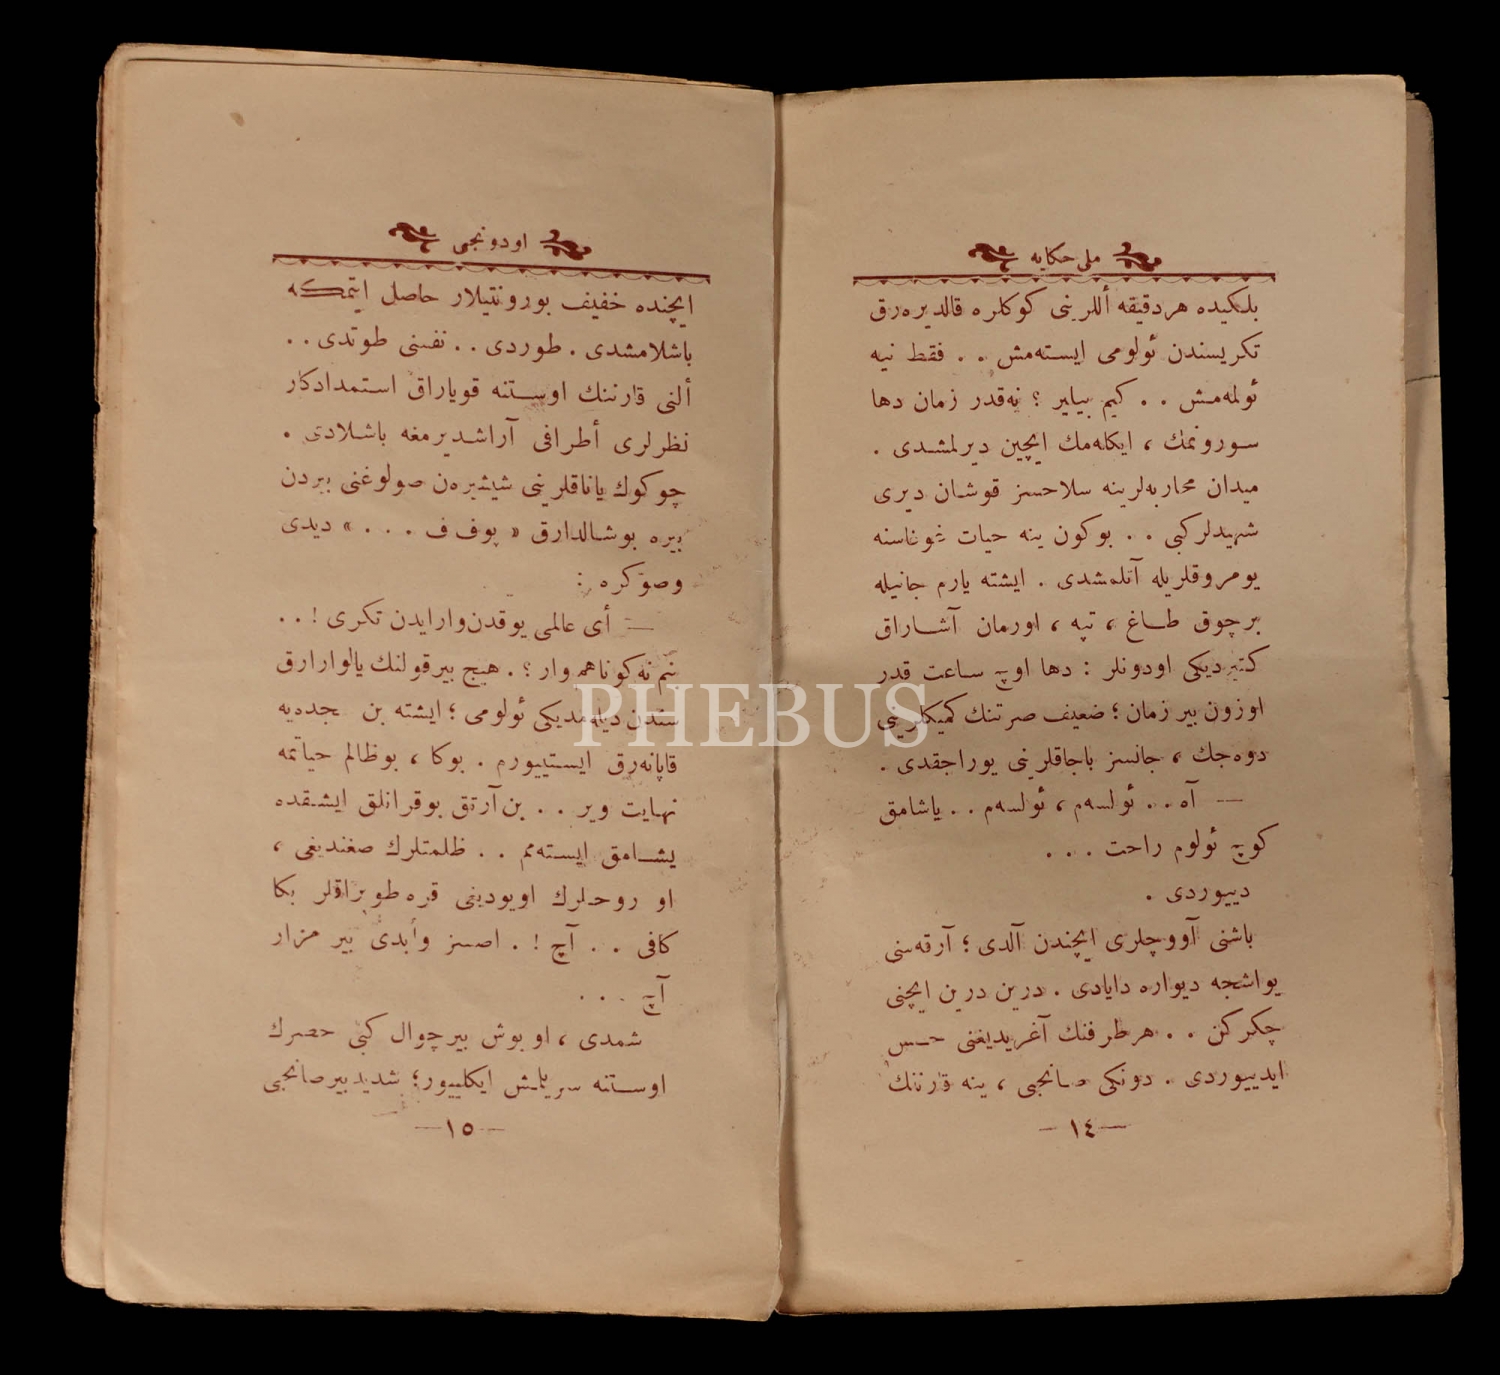 ملی حکایه
بلکیده هردقیقه أللرینی کوکلره قالدیره‌رق
تکریسندن ئولومی ایسته‌مش . . فقط نیه
ئولمه‌مش . . کیم بیلیر ؟ نه‌قدر زمان دها
سورونمك ، ایکله‌مك ایچین دیرلمشدی .
میدان محاربه‌لرینه سلاحسز قوشان دیری
شهیدلرکبی . . بوکون ینه حیات غوغاسنه
یومروقلریله آتلمشدی . ایشته یارم جانیله
برچوق طاغ ، تپه ، اورمان آشاراق
کتیردیکی اودونلر : دها اوچ ساعت قدر
اوزون بیر زمان ؛ ضعیف صرتنك کمیکلرینی
دوه‌جك ، جانسز باجاقلرینی یوراجقدی .
— آه . . ئولسه‌م ، ئولسه‌م . . یاشامق
کوچ ئولوم راحت . . .
دییوردی .
باشنی آووچلری ایچندن آلدی ؛ آرقه‌سنی
یواشجه دیواره دایادی . درین درین ایچنی
چکرکن . . هرطرفنك آغریدیغنی حس
ایدییوردی . دونکی صانجی ، ینه قارننك
— ١٤ —
اودونجی
ایچنده خفیف بورونتیلار حاصل ایتمکه
باشلامشدی . طوردی . . نفسنی طوتدی . .
ألنی قارننك اوستنه قویاراق استمدادکار
نظرلری أطرافی آراشدیرمغه باشلادی .
چوکوك یاناقلرینی شیشیره‌ن صولوغنی بیردن
بیره بوشالدارق « پوف ف . . . » دیدی
وصوکره :
— أی عالمی یوقدن‌وارایدن تکری ! . .
نم نه‌کوناهم وار ؟ . هیچ بیرقولنك یالوارارق
سندن دیله‌مدیکی ئولومی ؛ ایشته بن سجده‌یه
قاپانه‌رق ایستییورم . بوکا ، بوظالم حیاتمه
نهایت ویر . . بن‌آرتق بوقرانلق ایشقده
یشامق ایسته‌مم . . ظلمتلرك صغندیغی ،
او روحلرك اویودینی قره طوپراقلر بکا
کافی . . آچ ! . اصسز وأبدی بیر مزار
آچ . . .
شمدی ، او بوش بیرچوال کبی حصرك
اوستنه سریلمش ایکلییور ؛ شدید بیرصانجی
— ١٥ —
PHEBUS